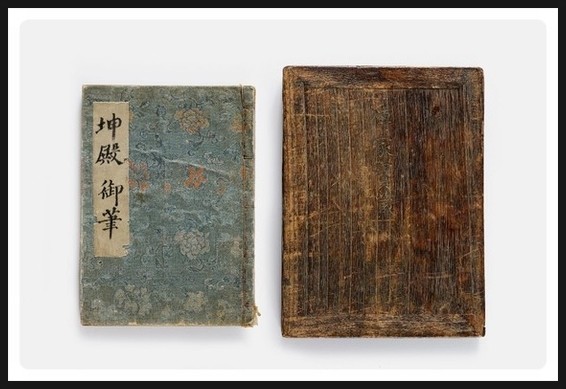 坤殿
御筆